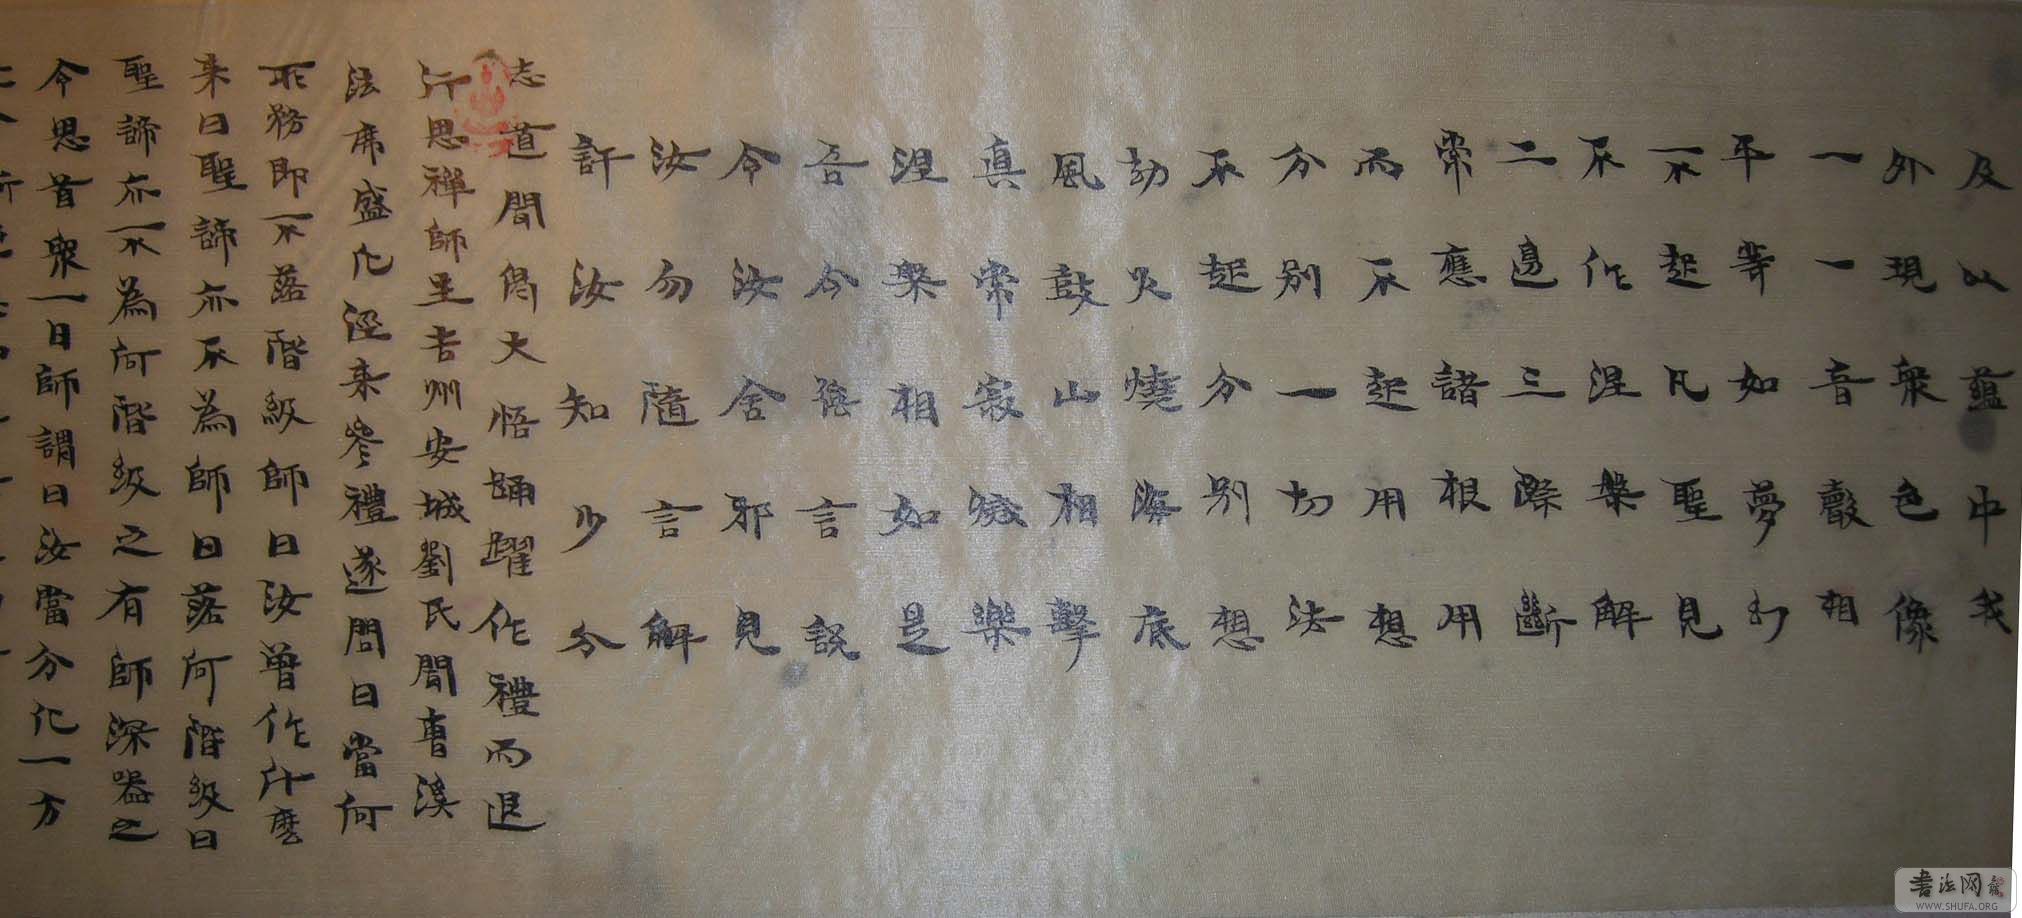 及以蘊中我
外現眾色像
一一音聲相
平等如夢幻
不起凡聖見
不作涅槃解
二邊三際斷
常應諸根用
而不起用想
分別一切法
不起分別想
劫火燒海底
風鼓山相擊
真常寂滅樂
涅槃相如是
吾今強言說
令汝舍邪見
汝勿隨言解
許汝知少分
志道聞偈大悟踊躍作禮而退
行思禪師生吉州安城劉氏聞曹溪
法席盛化徑來參禮遂問曰當何
所務即不落階級師曰汝曾作什麼
來曰聖諦亦不為師曰落何階級曰
聖諦亦不為何階級之有師深器之
令思首眾一日師謂曰汝當分化一方
书法网
WWW.SHUFA.ORG